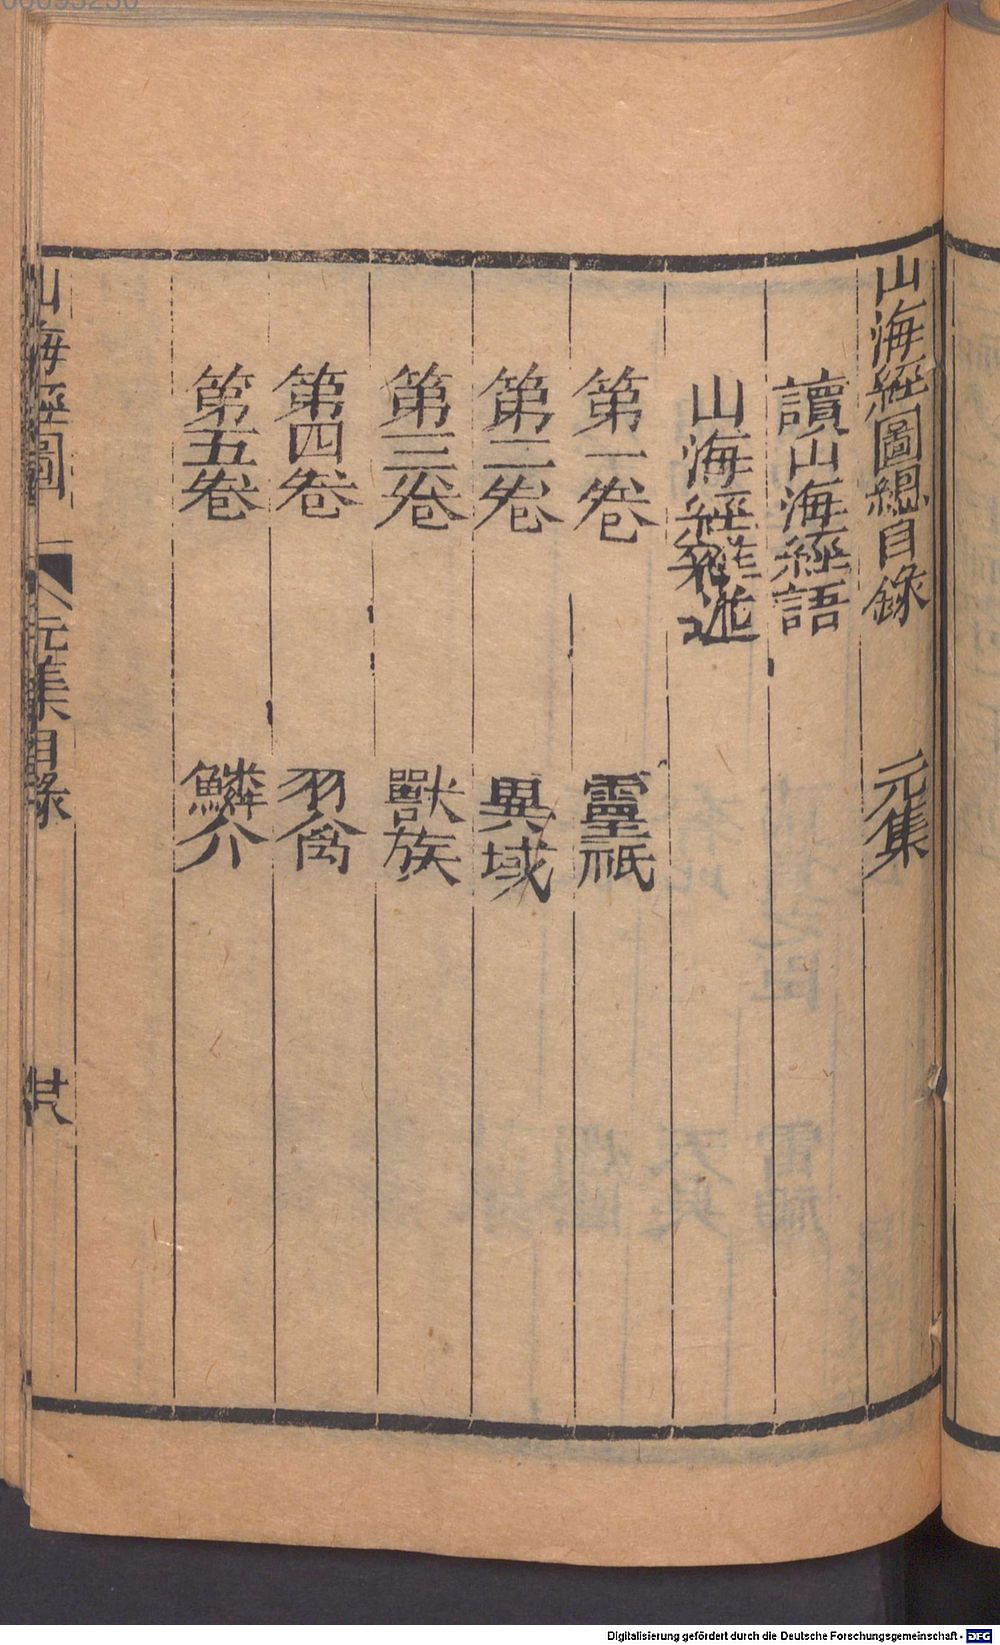 山海經圖緫目錄 元集
讀山海經語
山海經雜述
第一卷 靈祇
第二卷 異域
第三卷 獸族
第四卷 羽禽
第五卷 鱗介
山海經圖 元集目錄
Digitalisierung gefördert durch die Deutsche Forschungsgemeinschaft - DFG